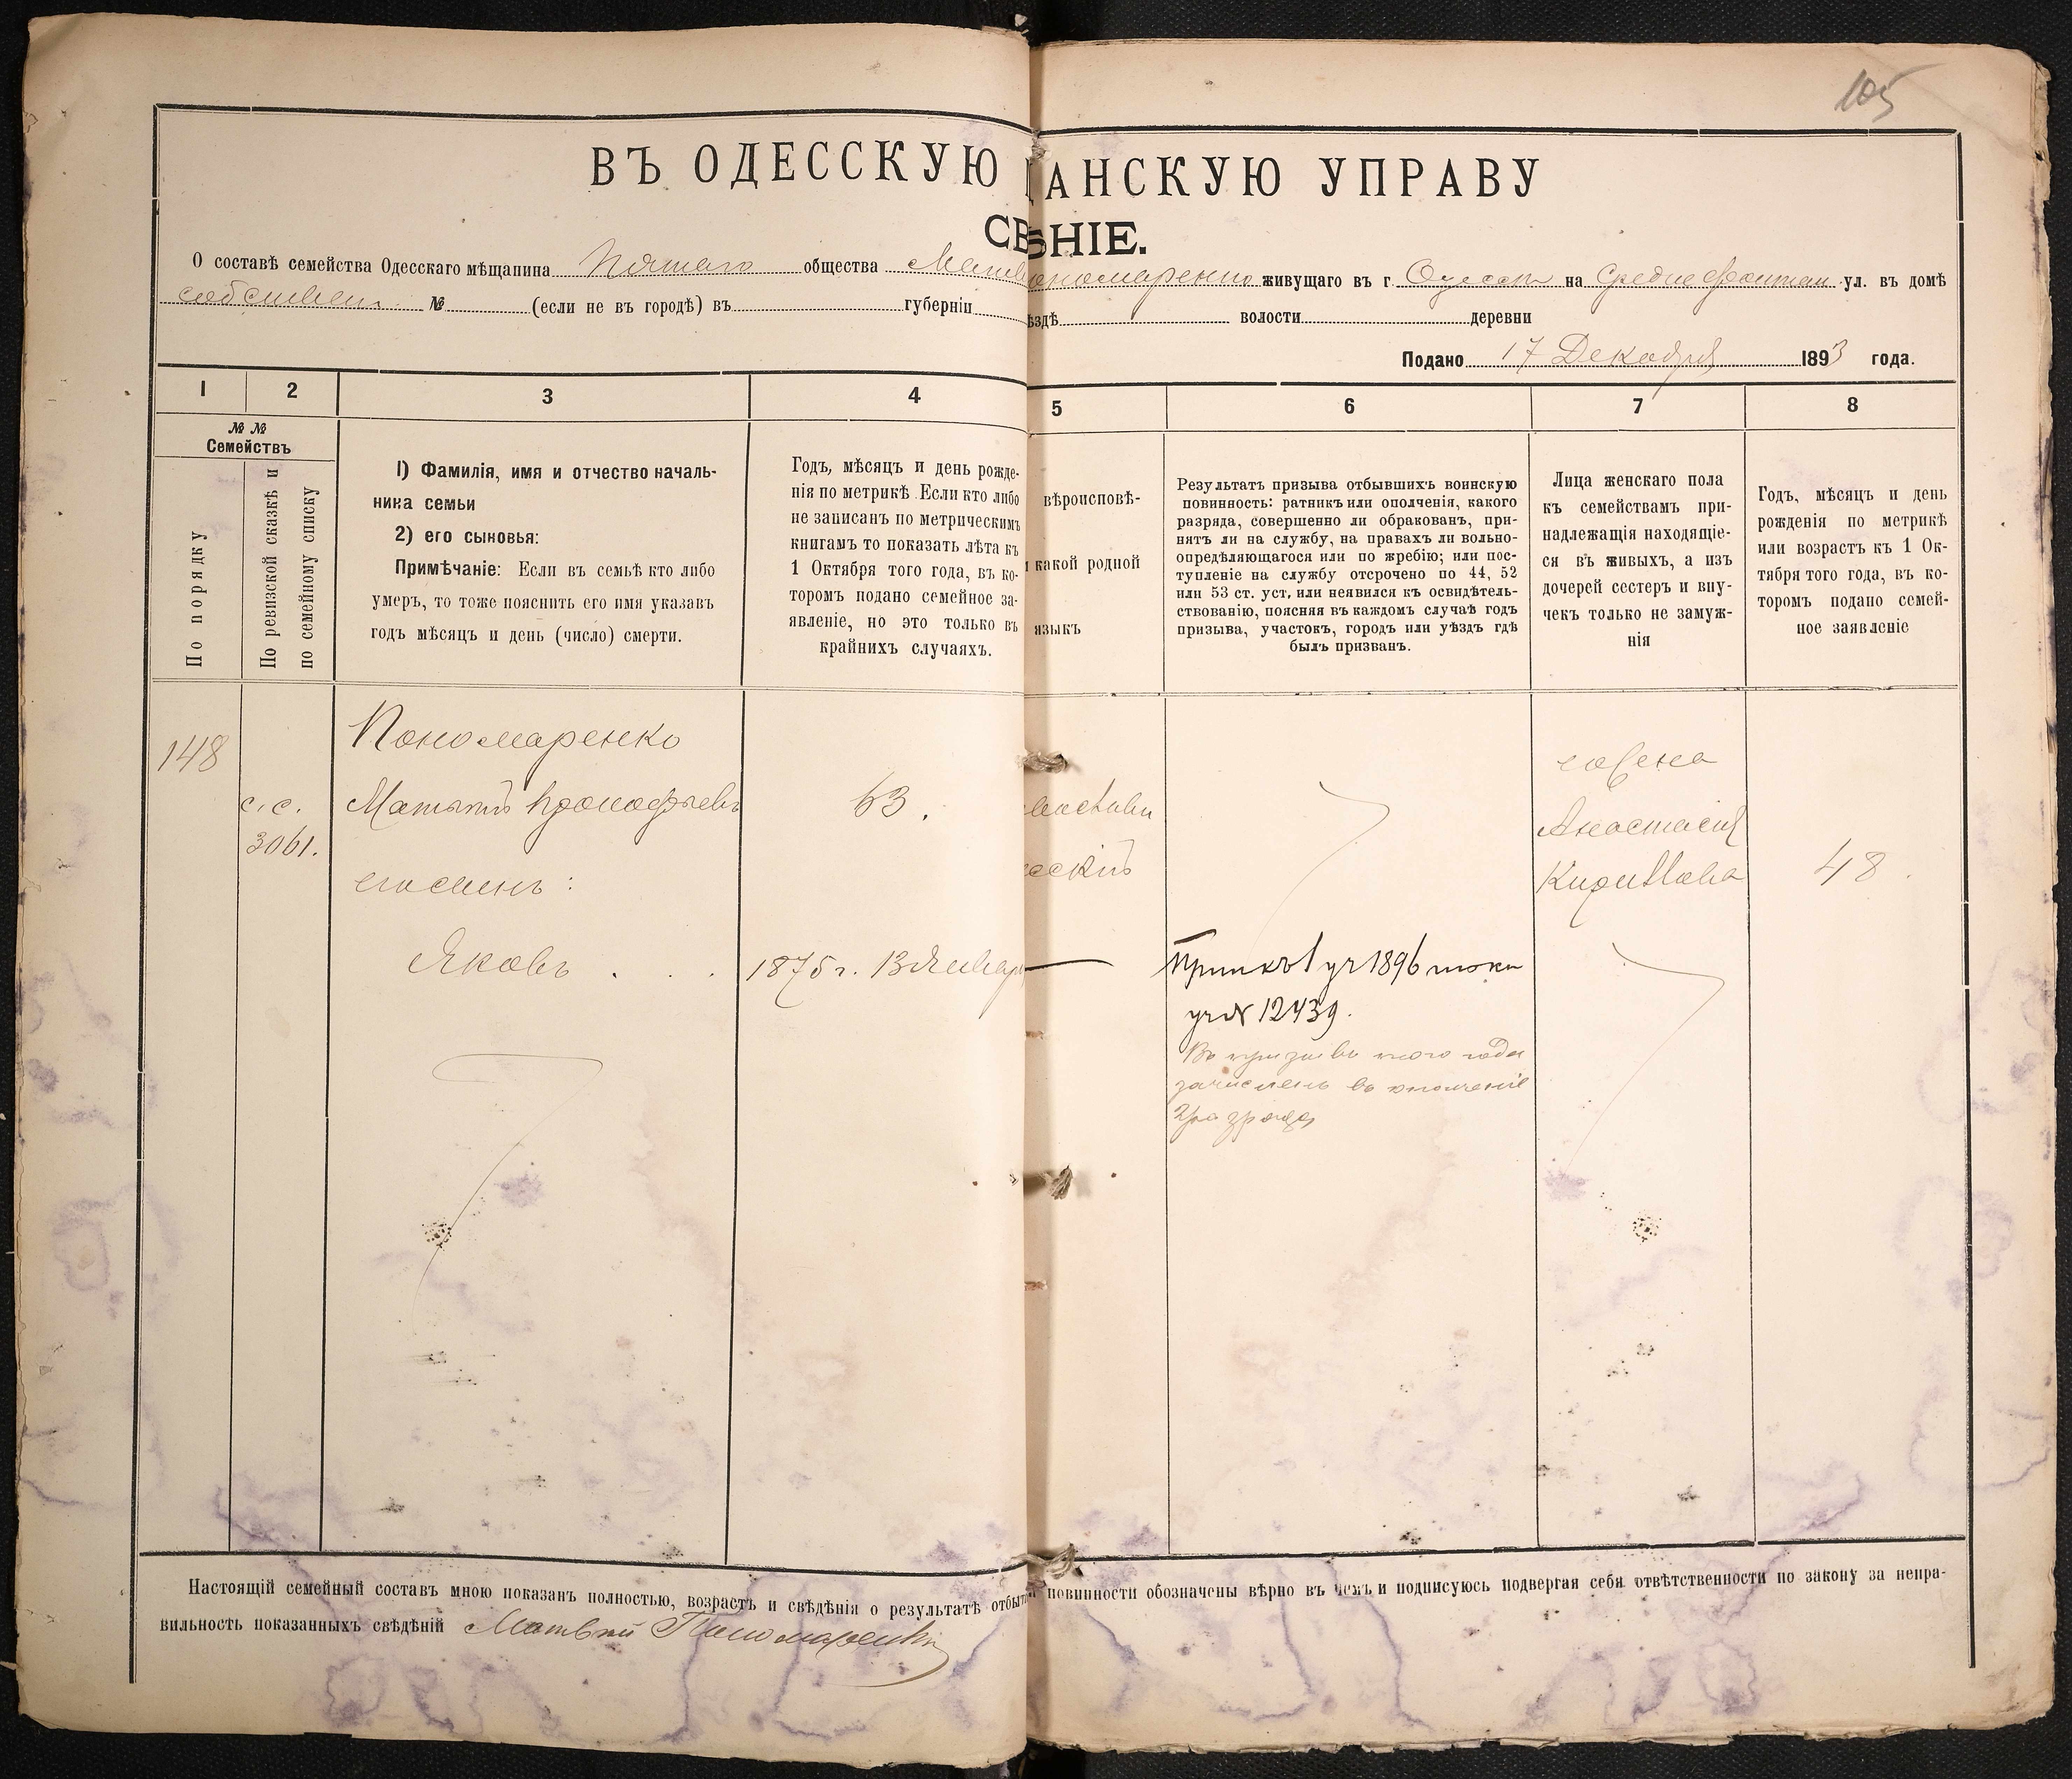 105
ВЪ ОДЕССКУЮ ЩАНСКУЮ УПРАВУ
СВ ѢНІЕ.
О составѣ семейства Одесскаго мѣщанина Пятаго общества Матв ономаренко живущаго въ г. Одессѣ на Средне фонтан. ул. въ домѣ
собствен. № (если не въ городѣ) въ губерніи ѣздѣ волости деревни
Подано 17 Декабря 1893 года.
1 2 3 4 5 6 7 8
№ №
Семействъ
По порядку
По ревизской сказкѣ и
по семейному списку
1) Фамилія, имя и отчество началь-
ника семьи
2) его сыновья:
Примѣчаніе: Если въ семьѣ кто либо
умеръ, то тоже пояснить его имя указавъ
годъ мѣсяцъ и день (число) смерти.
Годъ, мѣсяцъ и день рожде-
нія по метрикѣ. Если кто либо
не записанъ по метрическимъ
книгамъ то показать лѣта къ
1 Октября того года, въ ко-
торомъ подано семейное за-
явленіе, но это только въ
крайнихъ случаяхъ.
вѣроисповѣ-
и какой родной
языкъ
Результатъ призыва отбывшихъ воинскую
повинность: ратникъ или ополченія, какого
разряда, совершенно ли обракованъ, при-
нятъ ли на службу, на правахъ ли вольно-
опредѣляющагося или по жребію; или пос-
тупленіе на службу отсрочено по 44, 52
или 53 ст. уст. или неявился къ освидѣтель-
ствованію, поясняя въ каждомъ случаѣ годъ
призыва, участокъ, городъ или уѣздъ гдѣ
былъ призван.
Лица женскаго пола
къ семействамъ при-
надлежащія находящіе-
ся въ живыхъ, а изъ
дочерей сестеръ и вну-
чекъ только не замуж-
нія
Годъ, мѣсяцъ и день
рожденія по метрикѣ
или возрастъ къ 1 Ок-
тября того года, въ ко-
торомъ подано семей-
ное заявленіе
148
с. с.
3061.
Пономаренко
Матвѣй Прокофьевъ
его сынъ:
Яковъ . . .
63.
1875 г. 13 Январ
лавян
сскій
Прип къ 1 уч 1896
уч № 12439.
Въ призывъ того года
зачисленъ въ ополченіе
2 разряда
жена
Анастасія
Кириллова
48.
Настоящій семейный составъ мною показанъ полностью, возрастъ и свѣдѣнія о результатѣ отбыт повинности обозначены вѣрно въ чемъ и подписуюсь подвергая себя отвѣтственности по закону за непра-
вильность показанныхъ свѣдѣній Матвѣй Пономаренко